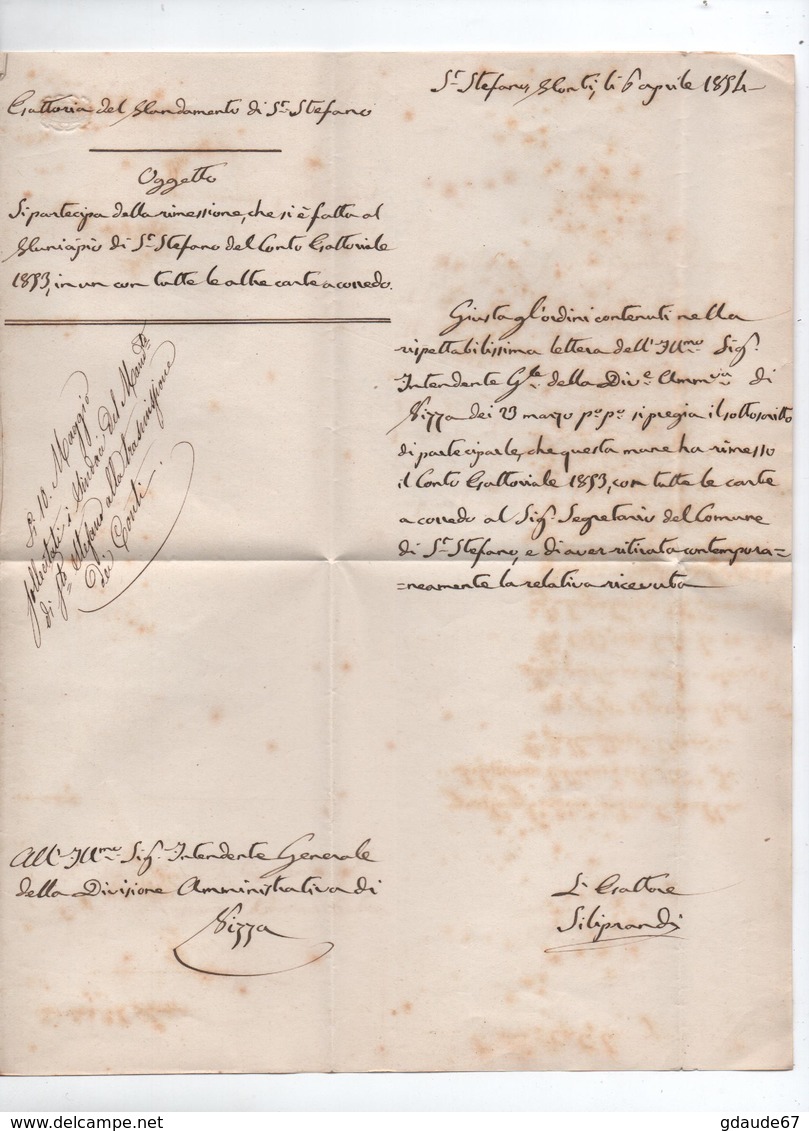 Esattoria del Mandamento di St. Stefano
Oggetto
Si partecipa della rimessione, che si è fatta al
Municipio di St. Stefano del Conto Esattoriale
1853, in un con tutte le altre carte a corredo.
St. Stefano, Monti, li 6 aprile 1854
Giusta gl'ordini contenuti nella
rispettabilissima lettera dell'Illmo Sigr.
Intendente Gle. della Dive. Ammva di
Nizza dei 23 marzo po. po. si pregia il sottoscritto
di parteciparle, che questa mane ha rimesso
il Conto Esattoriale 1853, con tutte le carte
a corredo al Sigr. Segretario del Comune
di St. Stefano, e di aver ritirata contempora=
=neamente la relativa ricevuta
10. Maggio
sollecitati i Sindaci del Mandto
di Sto. Stefano alla trasmissione
dei Conti.
All'Illmo Sigr. Intendente Generale
della Divisione Amministrativa di
Nizza
L'Esattore
Siliprandi
delcampe.net
gdaude67